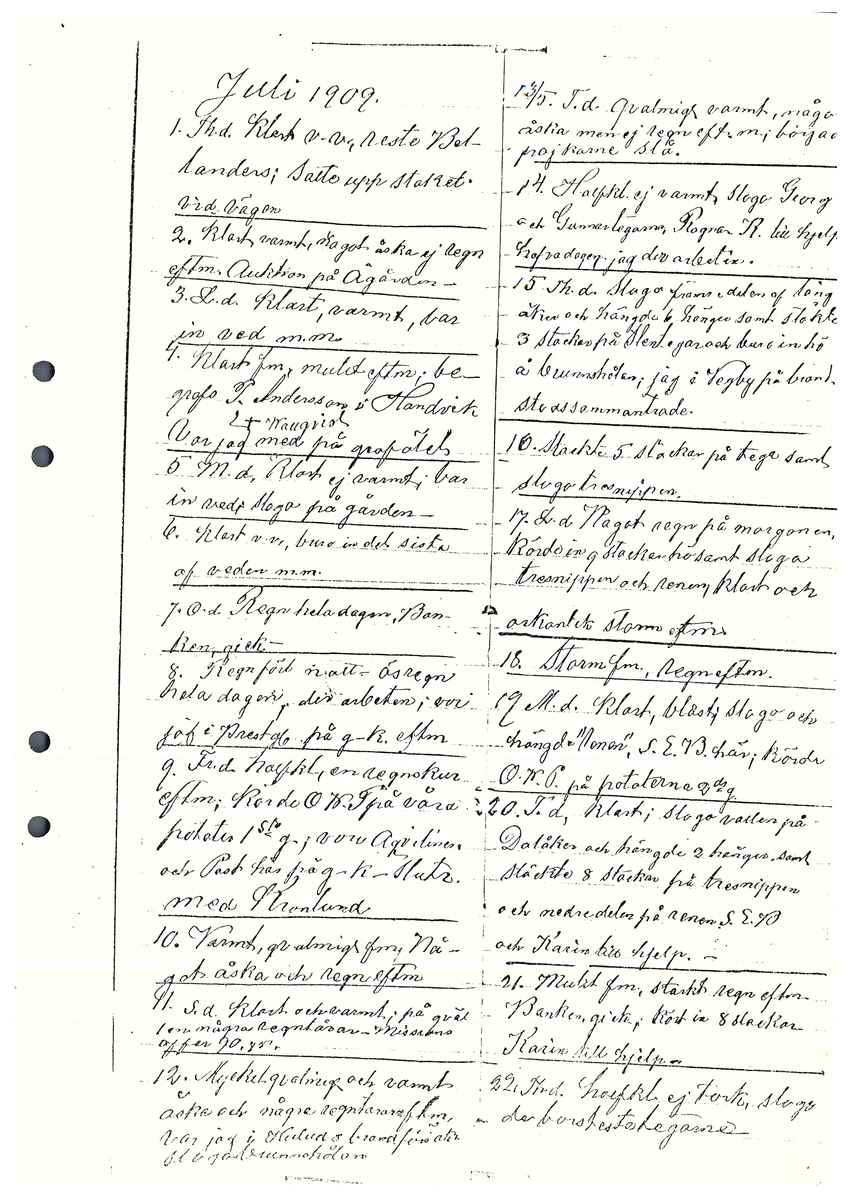 Juli 1909.
1. Thd. Klart v-v, reste Bel-
landers; satte upp staket
vid vägen
2. Klart, varmt, något åska ej regn
eftm. Auktion på Ågården —
3. L.d. Klart, varmt, bar
in ved m.m.
4. Klart fm, mulet eftm; be-
grofs P. Andersson i Handvik
Var jag med på grafölet
5 M.d. Klart ej varmt; bar
in ved; sloga på gården —
6. Klart v.v., buro in det sista
af veden m.m.
7. O.d. Regn hela dagen, Ban-
ken, gick —
8. Regn fört i natt — ösregn
hela dagen, div arbeten; vor
jag i Prestg. på g-k. eftm
9. Fr.d. halfkl, en regnskur
eftm; körde O.W.P på våra
potater 1sta g.; voro
och Post här på g-k —
med Kronlund
10. Varmt, qvalmigt fm, Nå-
got åska och regn eftm
11. S.d. Klart och varmt; på qväl
len några regntårar — Missions
offer
12. Mycket qvalmigt och varmt
åska och några regntårar eftm,
var jag i
brunnshålan
13/5. T.d. qvalmigt varmt, någo
åska men ej regn eft.m; börjad
pojkarne slå.
14. Halfkl. ej varmt, sloga Georg
och Gunnar tegarne, Ragnar R. till hjelp
halfva dagen, jag div arbeten.
15 Th.d. Sloga främre delen af lång
åker och hängde 6 hänger samt stäkte
3 stackar på tegar och buro in hö
å brunnshålan; jag i Vegby på brand-
stodssammanträde.
16. Stäckte 5 stackar på tege samt
sloga tresnippen.
17. L.d Något regn på morgonen,
Körde in 9 stackar hö samt sloga
tresnippen och renen, klart och
orkanlik storm eftm
18. Storm fm, regn eftm.
19 M.d. Klart, blåst; sloga och
hängde "renen", S.E.B. här; körde
O.W.P. på potaterna 2dra g
20. T.d, Klart; sloga vallen på
Dalåker och hängde 2 hänger samt
stäckte 8 stackar på tresnippen
och nedre delen på renen S.E.B
och Karin till hjelp. —
21. Mulet fm, starkt regn eftm
Banken, gick; Kört in 8 stackar
Karin till hjelp —
22. Thd. halfkl, ej tork, sloga
de bortersta tegarne